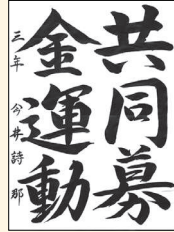 共同募
金運動
三年 今井詩那